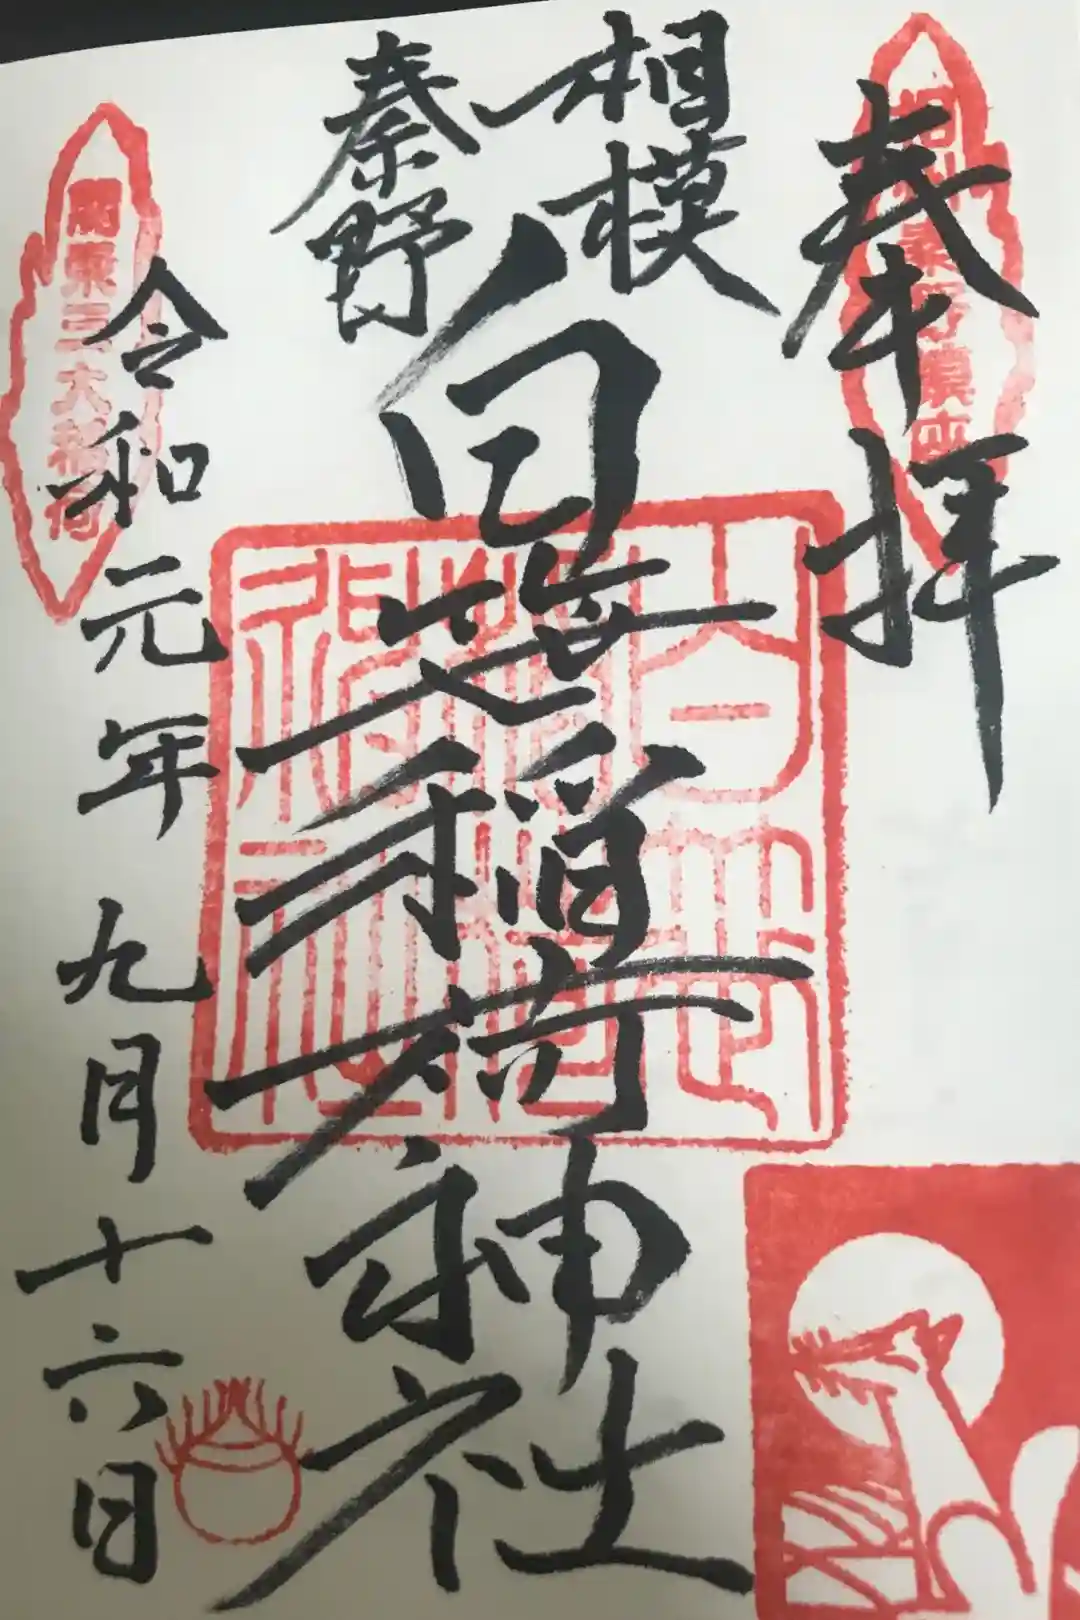 奉拝
相模
秦野
白笹稲荷神社
令和元年 九月十六日
関東三大稲荷